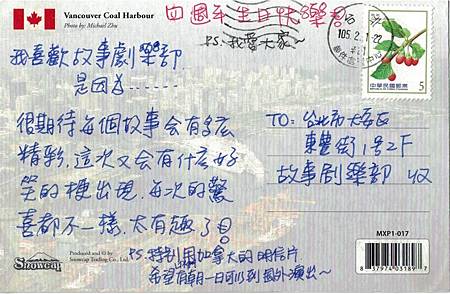 Vancouver Coal Harbour
Photo by: Michael Zhu
四周年生日快樂
P.S. 我愛大家~
105.2.
中華民國郵票
5
我喜歡故事劇樂部
是因為……
很期待每個故事会有多広
精彩,這次又会有什広好
笑的梗出現,每次的驚
喜都不一樣,太有趣了
TO: 台北市大安区
東豐街1号2F
故事劇樂部 收
P.S. 特別用加拿大的明信片
希望有朝一日可以到國外演出~
Produced and © by
Snowcap Trading Co., Ltd.
Snowcap
MXP1-017
8 57974 03189 7